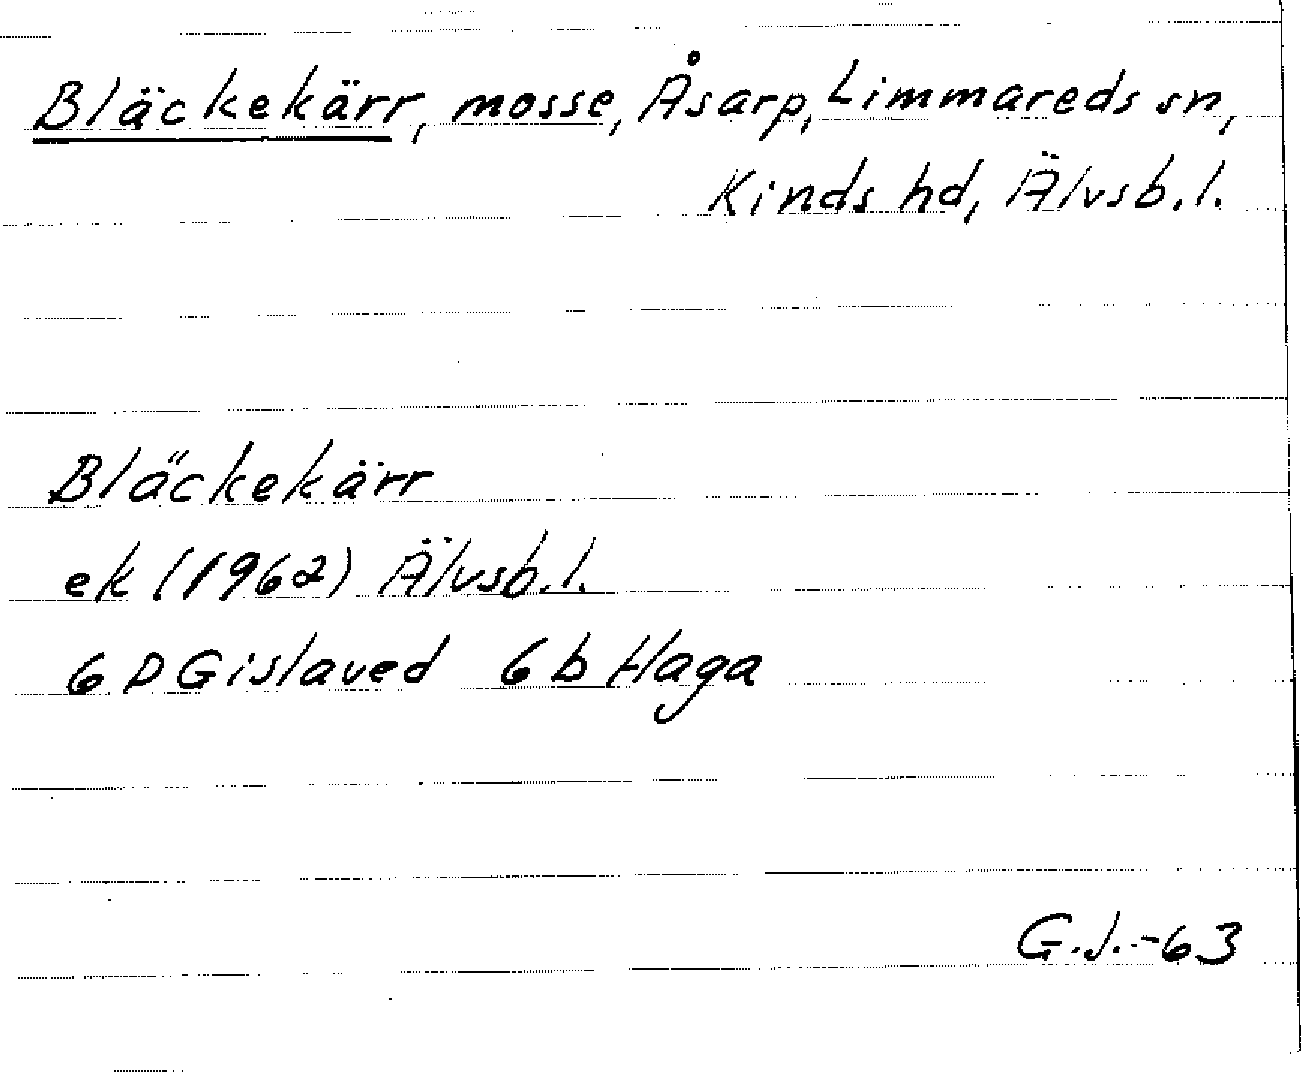 Bläckekärr, mosse, Åsarp, Limmareds sn,
Kinds hd, Älvsb. l.
Bläckekärr
ek (1962) Älvsb. l.
6 D Gislaved 6 b Haga
G.J.-63